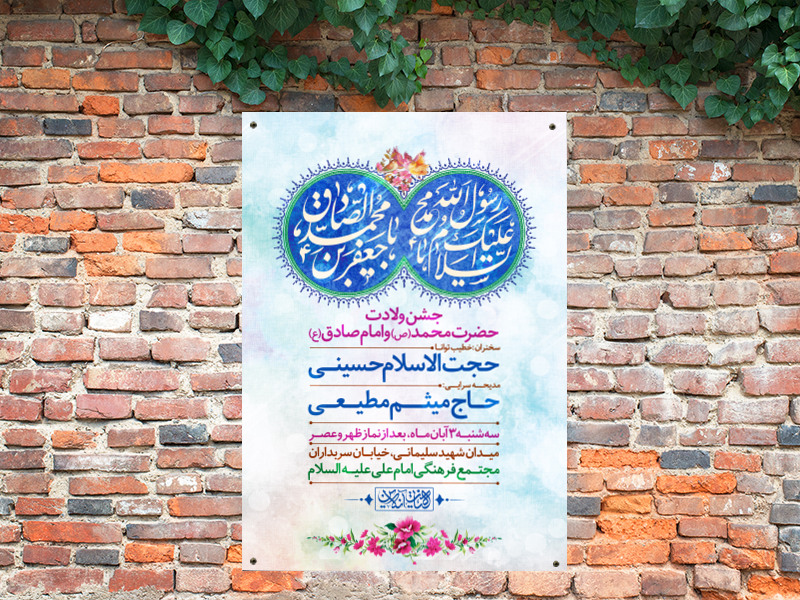 السلام علیک یا محمد رسول الله
یا جعفر بن محمد الصادق
جشن ولادت
حضرت محمد (ص) و امام صادق (ع)
سخنران: خطیب توانا
حجت الاسلام حسینی
مدیحه سرایی:
حاج میثم مطیعی
سه شنبه ۳ آبان ماه، بعد از نماز ظهر و عصر
میدان شهید سلیمانی، خیابان سربداران
مجتمع فرهنگی امام علی علیه السلام